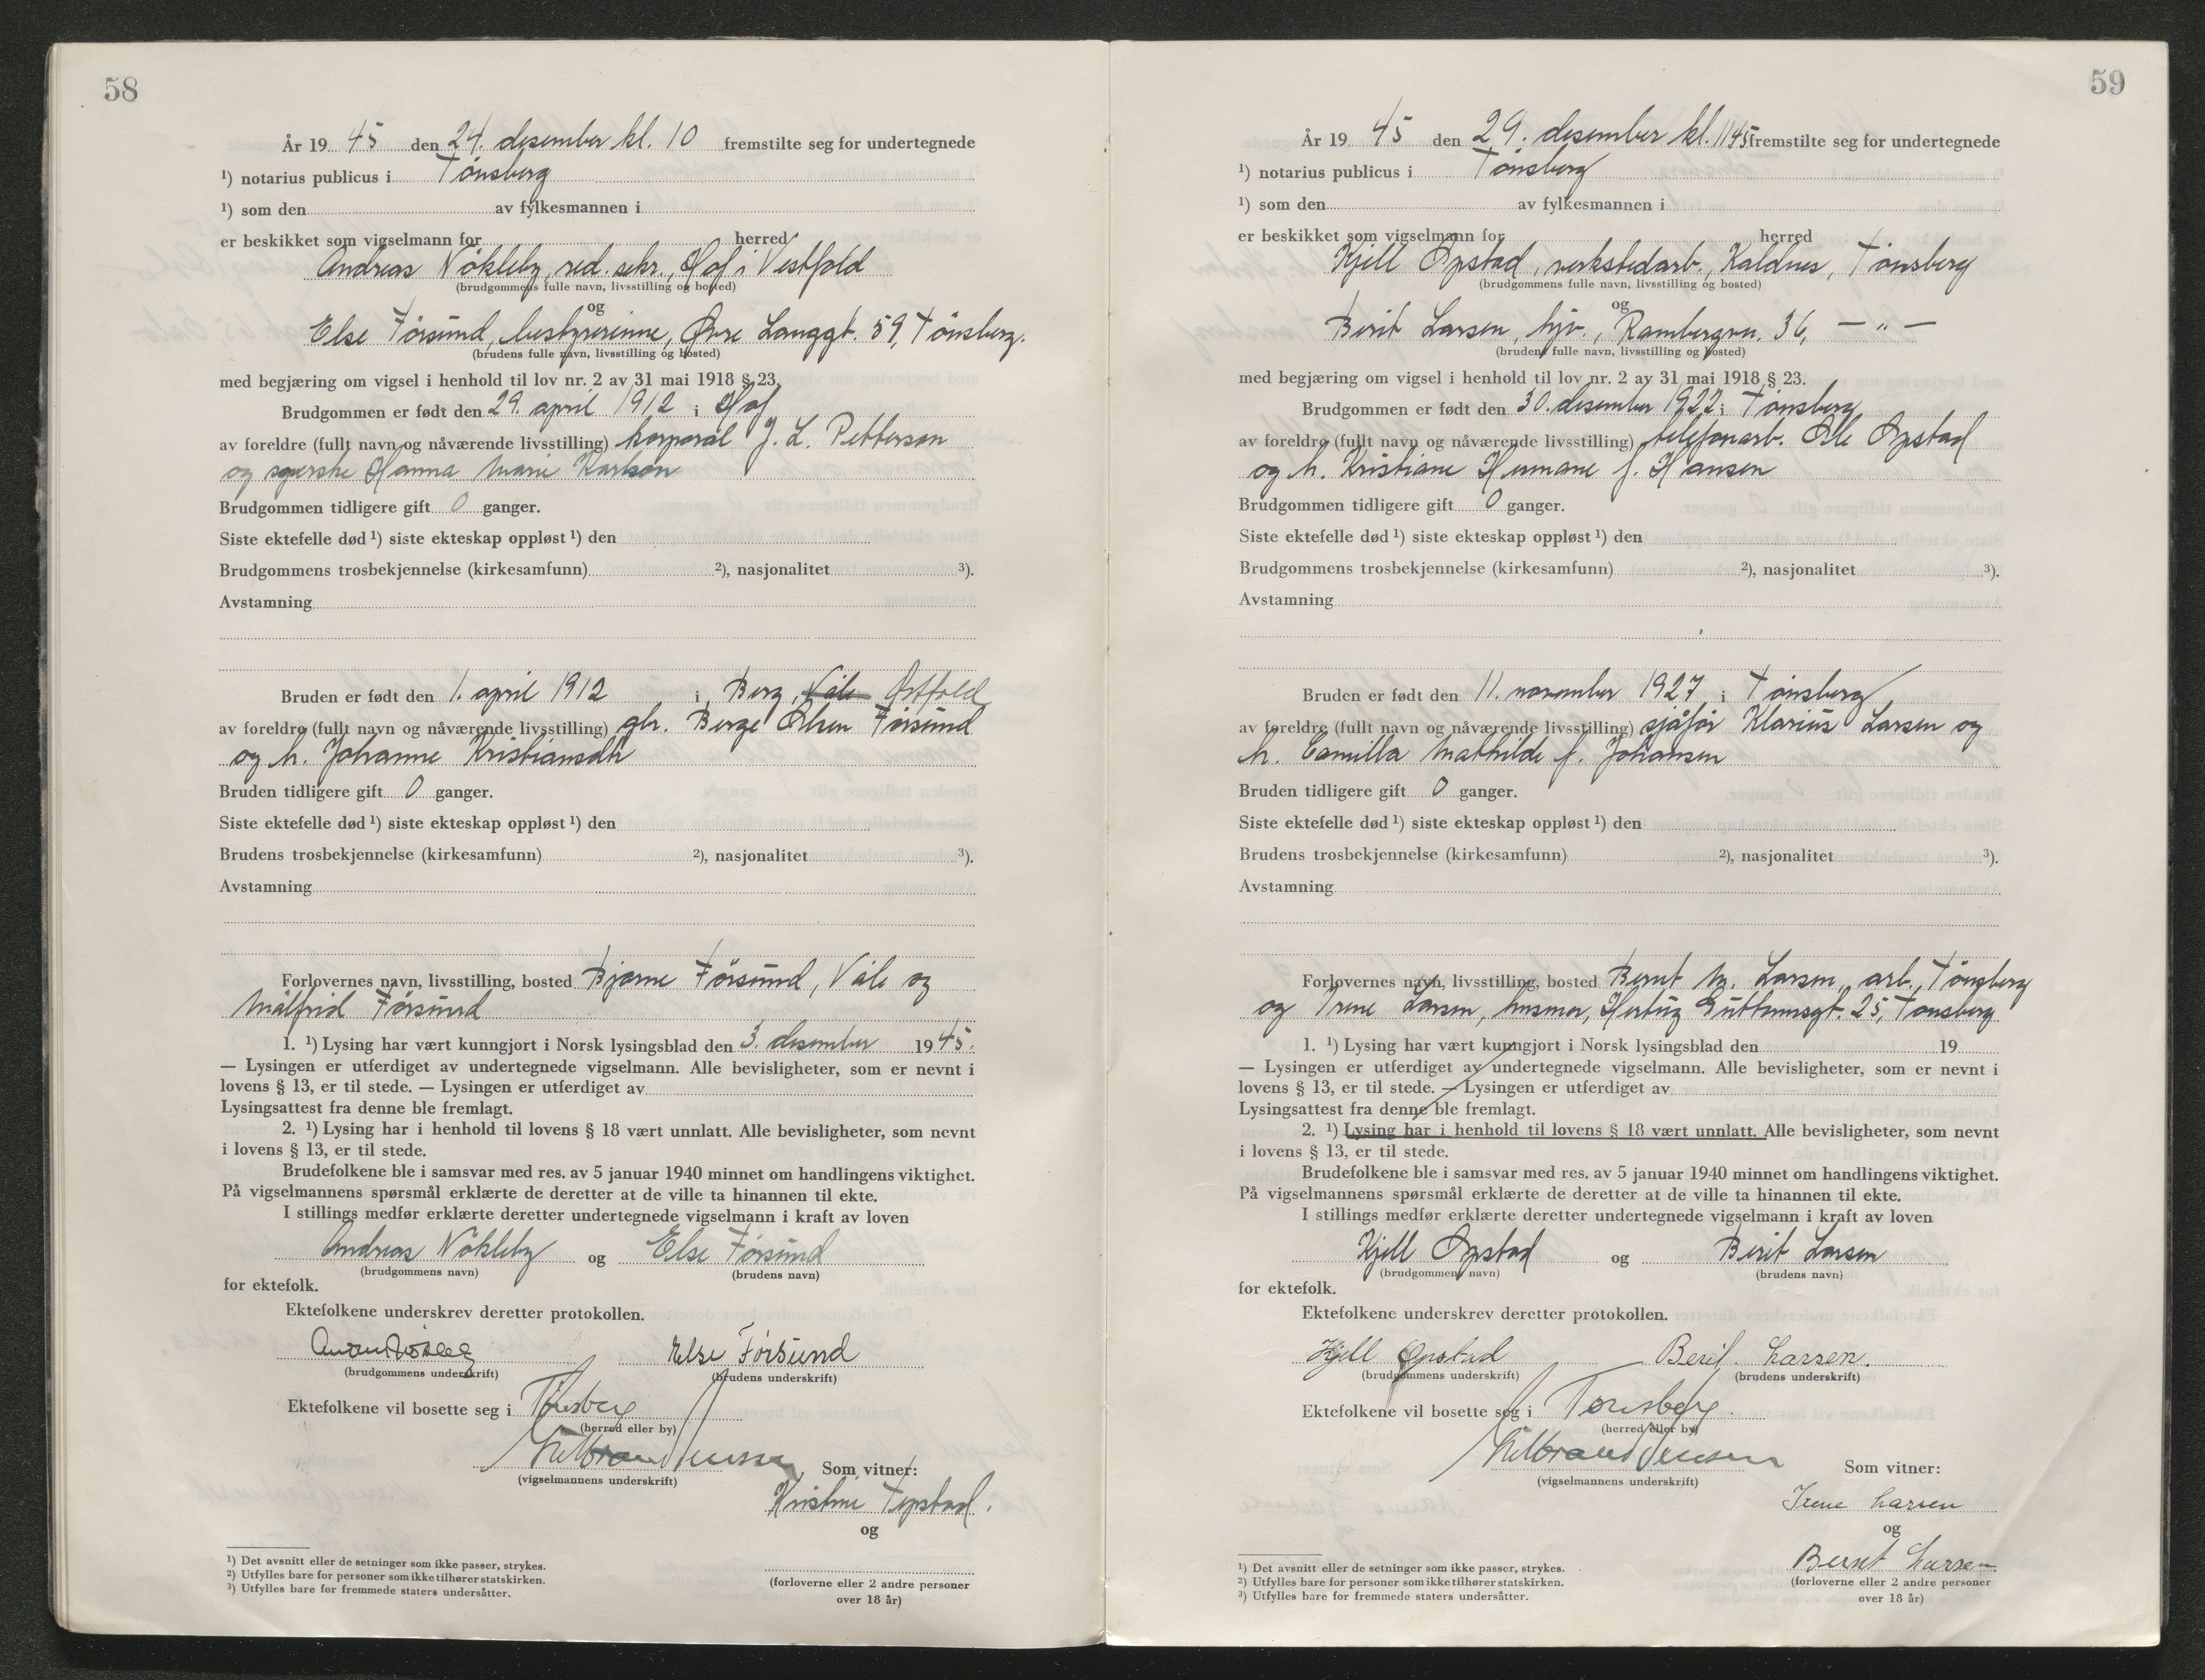 58
År 19 45 den 24. desember kl. 10 fremstilte seg for undertegnede
¹) notarius publicus i Tönsberg
¹) som den av fylkesmannen i
er beskikket som vigselmann for herred
Andreas Nökleby, red. sekr., Hof i Vestfold
(brudgommens fulle navn, livsstilling og bosted)
og
Else Försund, bestyrerinne, Øvre Langgt. 59, Tönsberg.
(brudens fulle navn, livsstilling og bosted)
med begjæring om vigsel i henhold til lov nr. 2 av 31 mai 1918 § 23.
Brudgommen er født den 29. april 1912 i Hof
av foreldre (fullt navn og nåværende livsstilling) korporal J. L. Petterson
og syerske Hanna Marie Karlson
Brudgommen tidligere gift 0 ganger.
Siste ektefelle død ¹) siste ekteskap oppløst ¹) den
Brudgommens trosbekjennelse (kirkesamfunn) ²), nasjonalitet ³).
Avstamning
Bruden er født den 1. april 1912 i Berg, Våle Østfold
av foreldre (fullt navn og nåværende livsstilling) gbr. Berge Olsen Försund
og h. Johanne Kristiansdtr
Bruden tidligere gift 0 ganger.
Siste ektefelle død ¹) siste ekteskap oppløst ¹) den
Brudens trosbekjennelse (kirkesamfunn) ²), nasjonalitet ³).
Avstamning
Forlovernes navn, livsstilling, bosted Bjarne Försund, Våle og
Målfrid Försund
1. ¹) Lysing har vært kunngjort i Norsk lysingsblad den 3. desember 19 45.
— Lysingen er utferdiget av undertegnede vigselmann. Alle bevisligheter, som er nevnt i
lovens § 13, er til stede. — Lysingen er utferdiget av
Lysingsattest fra denne ble fremlagt.
2. ¹) Lysing har i henhold til lovens § 18 vært unnlatt. Alle bevisligheter, som nevnt
i lovens § 13, er til stede.
Brudefolkene ble i samsvar med res. av 5 januar 1940 minnet om handlingens viktighet.
På vigselmannens spørsmål erklærte de deretter at de ville ta hinannen til ekte.
I stillings medfør erklærte deretter undertegnede vigselmann i kraft av loven
Andreas Nökleby og Else Försund
(brudgommens navn) (brudens navn)
for ektefolk.
Ektefolkene underskrev deretter protokollen.
Else Försund
(brudgommens underskrift) (brudens underskrift)
Ektefolkene vil bosette seg i Tönsberg
(herred eller by)
(vigselmannens underskrift)
Som vitner:
Kristine Tepstad.
og
¹) Det avsnitt eller de setninger som ikke passer, strykes.
²) Utfylles bare for personer som ikke tilhører statskirken.
³) Utfylles bare for fremmede staters undersåtter.
(forloverne eller 2 andre personer
over 18 år)
59
År 19 45 den 29. desember kl. 1145 fremstilte seg for undertegnede
¹) notarius publicus i Tönsberg
¹) som den av fylkesmannen i
er beskikket som vigselmann for herred
Kjell Opstad, verkstedarb., Kaldnes, Tönsberg
(brudgommens fulle navn, livsstilling og bosted)
og
Berit Larsen, hjv., Rambergvn. 36, — „ —
(brudens fulle navn, livsstilling og bosted)
med begjæring om vigsel i henhold til lov nr. 2 av 31 mai 1918 § 23.
Brudgommen er født den 30. desember 1922 i Tönsberg
av foreldre (fullt navn og nåværende livsstilling) telefonarb. Ole Opstad
og h. Kristiane f. Hansen
Brudgommen tidligere gift 0 ganger.
Siste ektefelle død ¹) siste ekteskap oppløst ¹) den
Brudgommens trosbekjennelse (kirkesamfunn) ²), nasjonalitet ³).
Avstamning
Bruden er født den 11. november 1927 i Tönsberg
av foreldre (fullt navn og nåværende livsstilling) sjåför Klarius Larsen og
h. Camilla Mathilde f. Johansen
Bruden tidligere gift 0 ganger.
Siste ektefelle død ¹) siste ekteskap oppløst ¹) den
Brudens trosbekjennelse (kirkesamfunn) ²), nasjonalitet ³).
Avstamning
Forlovernes navn, livsstilling, bosted Bernt M. Larsen, arb., Tönsberg
og Irene Larsen, husmor, Hertug Guttormsgt. 25, Tönsberg
1. ¹) Lysing har vært kunngjort i Norsk lysingsblad den 19
— Lysingen er utferdiget av undertegnede vigselmann. Alle bevisligheter, som er nevnt i
lovens § 13, er til stede. — Lysingen er utferdiget av
Lysingsattest fra denne ble fremlagt.
2. ¹) Lysing har i henhold til lovens § 18 vært unnlatt. Alle bevisligheter, som nevnt
i lovens § 13, er til stede.
Brudefolkene ble i samsvar med res. av 5 januar 1940 minnet om handlingens viktighet.
På vigselmannens spørsmål erklærte de deretter at de ville ta hinannen til ekte.
I stillings medfør erklærte deretter undertegnede vigselmann i kraft av loven
Kjell Opstad og Berit Larsen
(brudgommens navn) (brudens navn)
for ektefolk.
Ektefolkene underskrev deretter protokollen.
Kjell Opstad Berit Larsen.
(brudgommens underskrift) (brudens underskrift)
Ektefolkene vil bosette seg i Tönsberg.
(herred eller by)
(vigselmannens underskrift)
Som vitner:
Irene Larsen
og
Bernt Larsen
¹) Det avsnitt eller de setninger som ikke passer, strykes.
²) Utfylles bare for personer som ikke tilhører statskirken.
³) Utfylles bare for fremmede staters undersåtter.
(forloverne eller 2 andre personer
over 18 år)